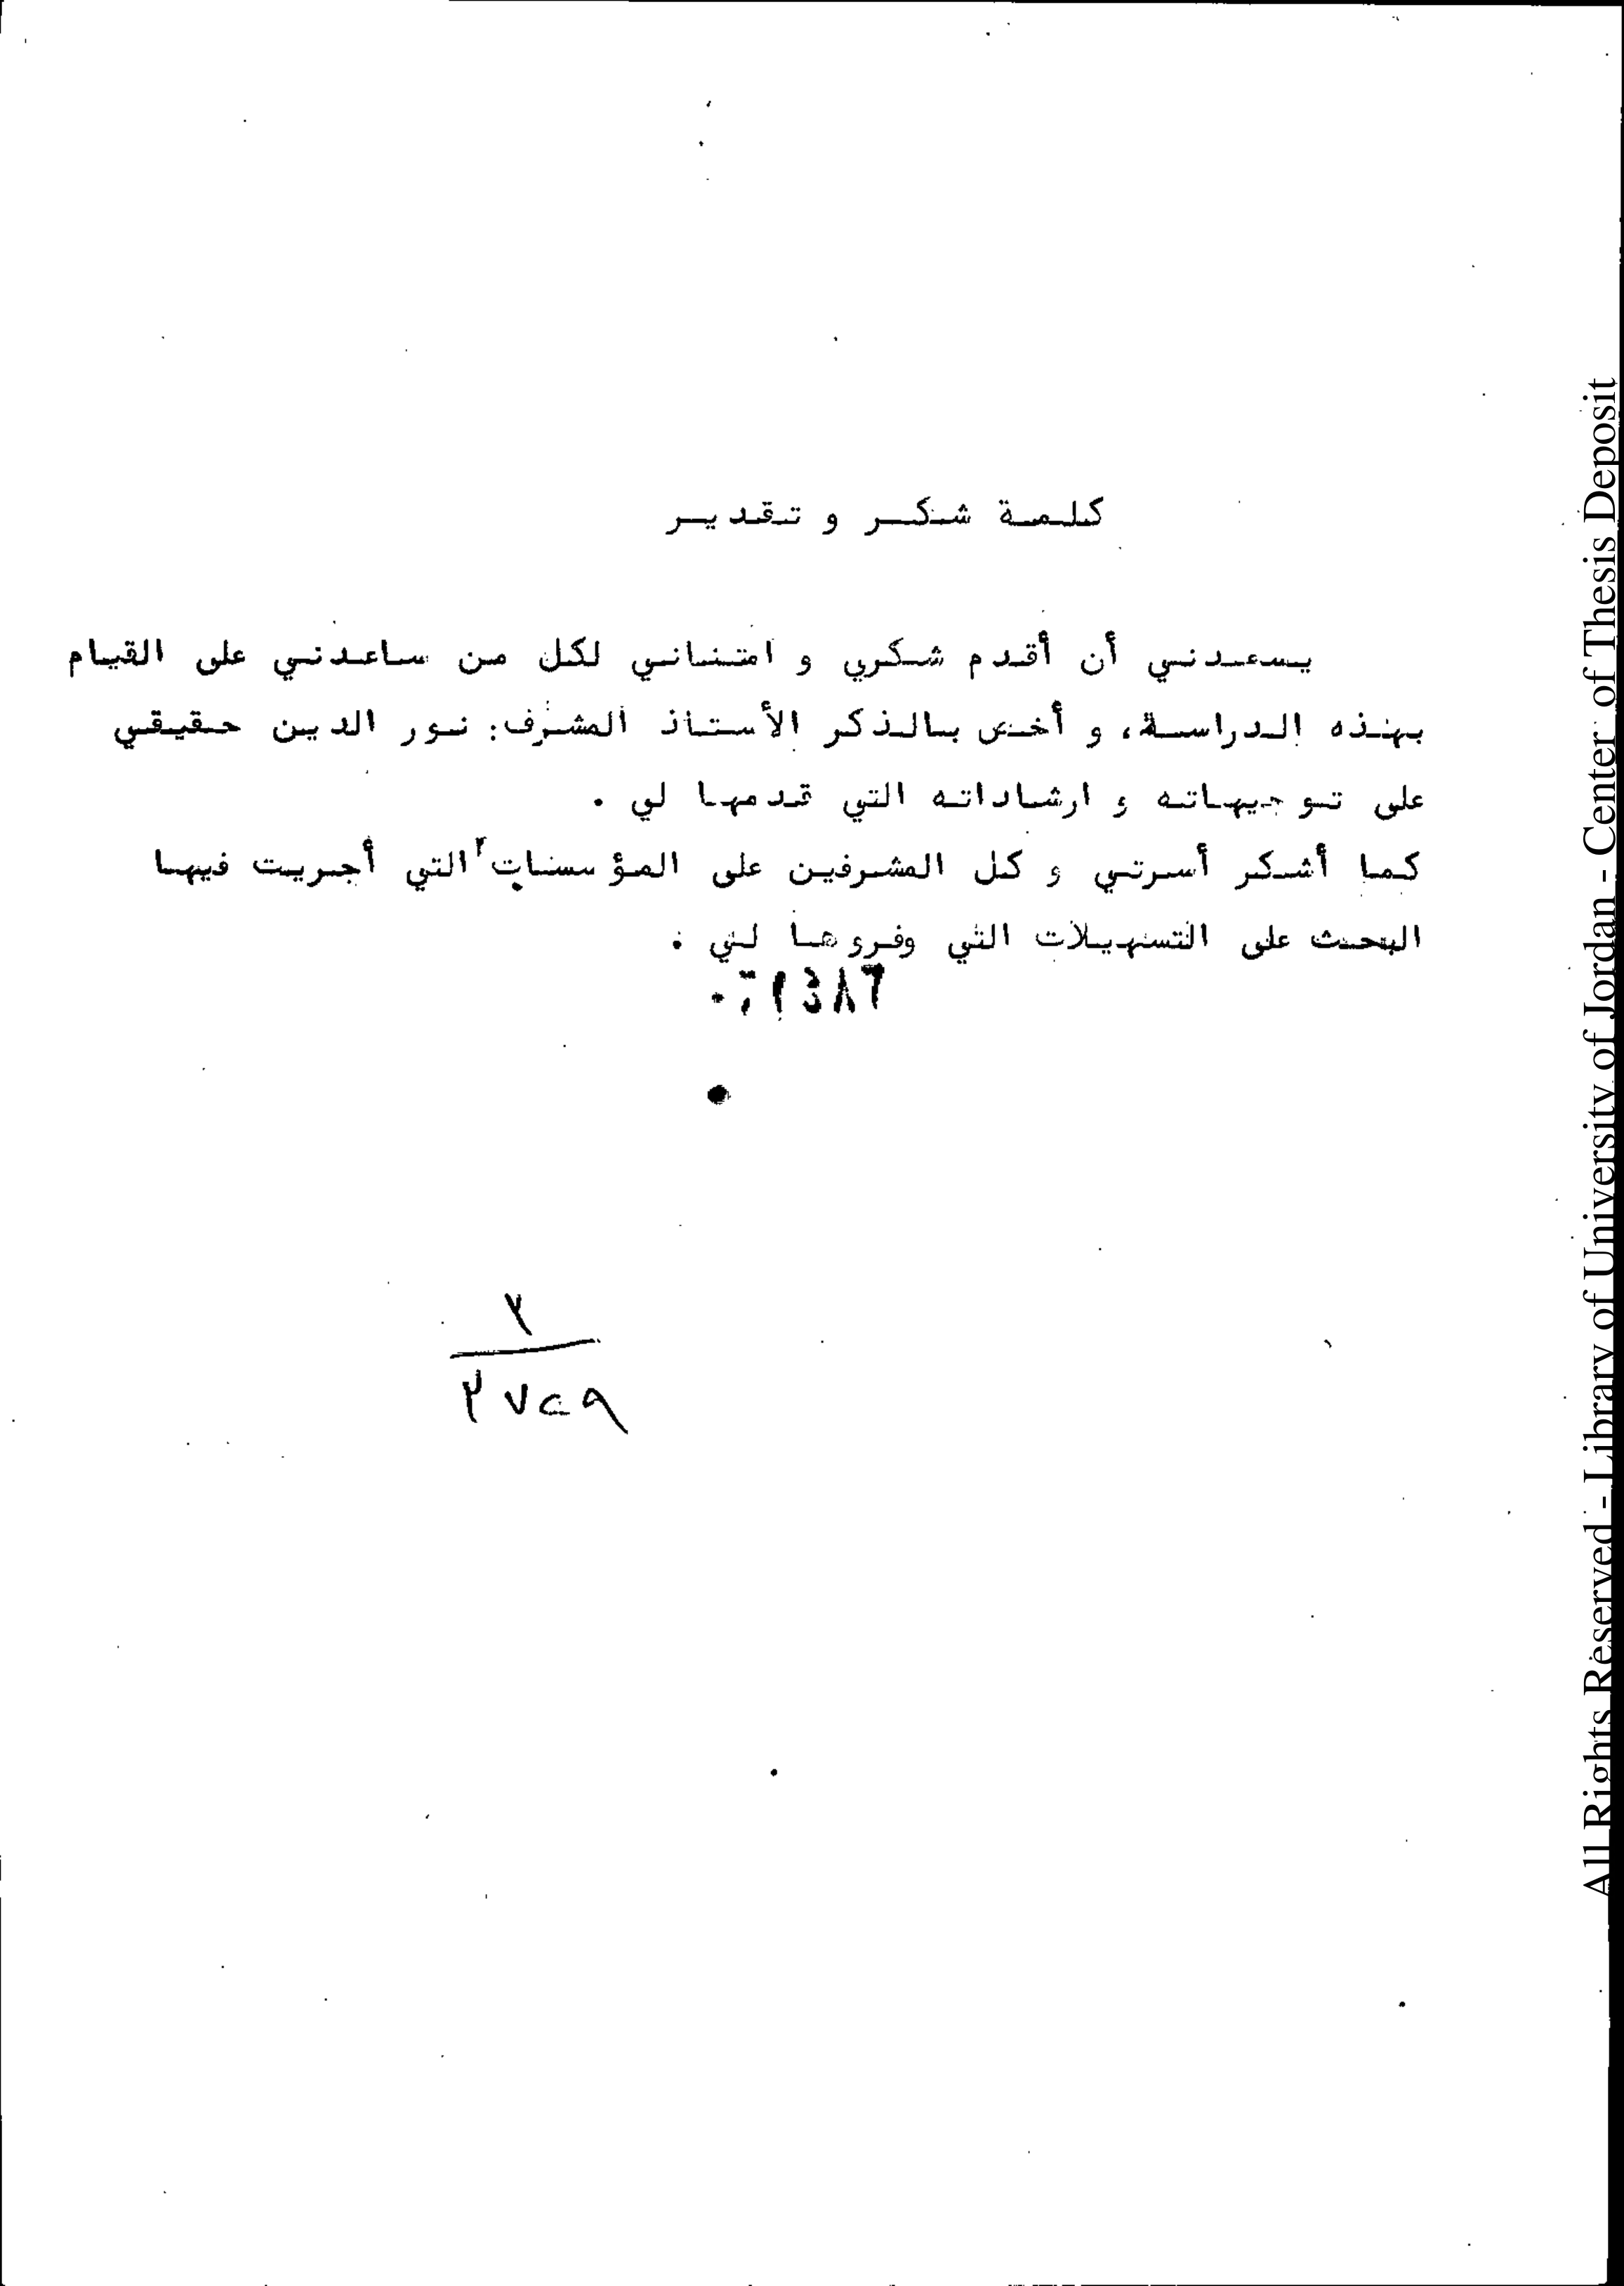 كلمة شكر و تقدير
يسعدني أن أقدم شكري و امتناني لكل من ساعدني على القيام
بهذه الدراسة، و أخص بالذكر الأستاذ المشرف: نور الدين حقيقي
على توجيهاته و ارشاداته التي قدمها لي .
كما أشكر أسرتي و كل المشرفين على المؤسسات التي أجريت فيها
البحث على التسهيلات التي وفروها لي .
٢
٢٧٢٩
All Rights Reserved - Library of University of Jordan - Center of Thesis Deposit